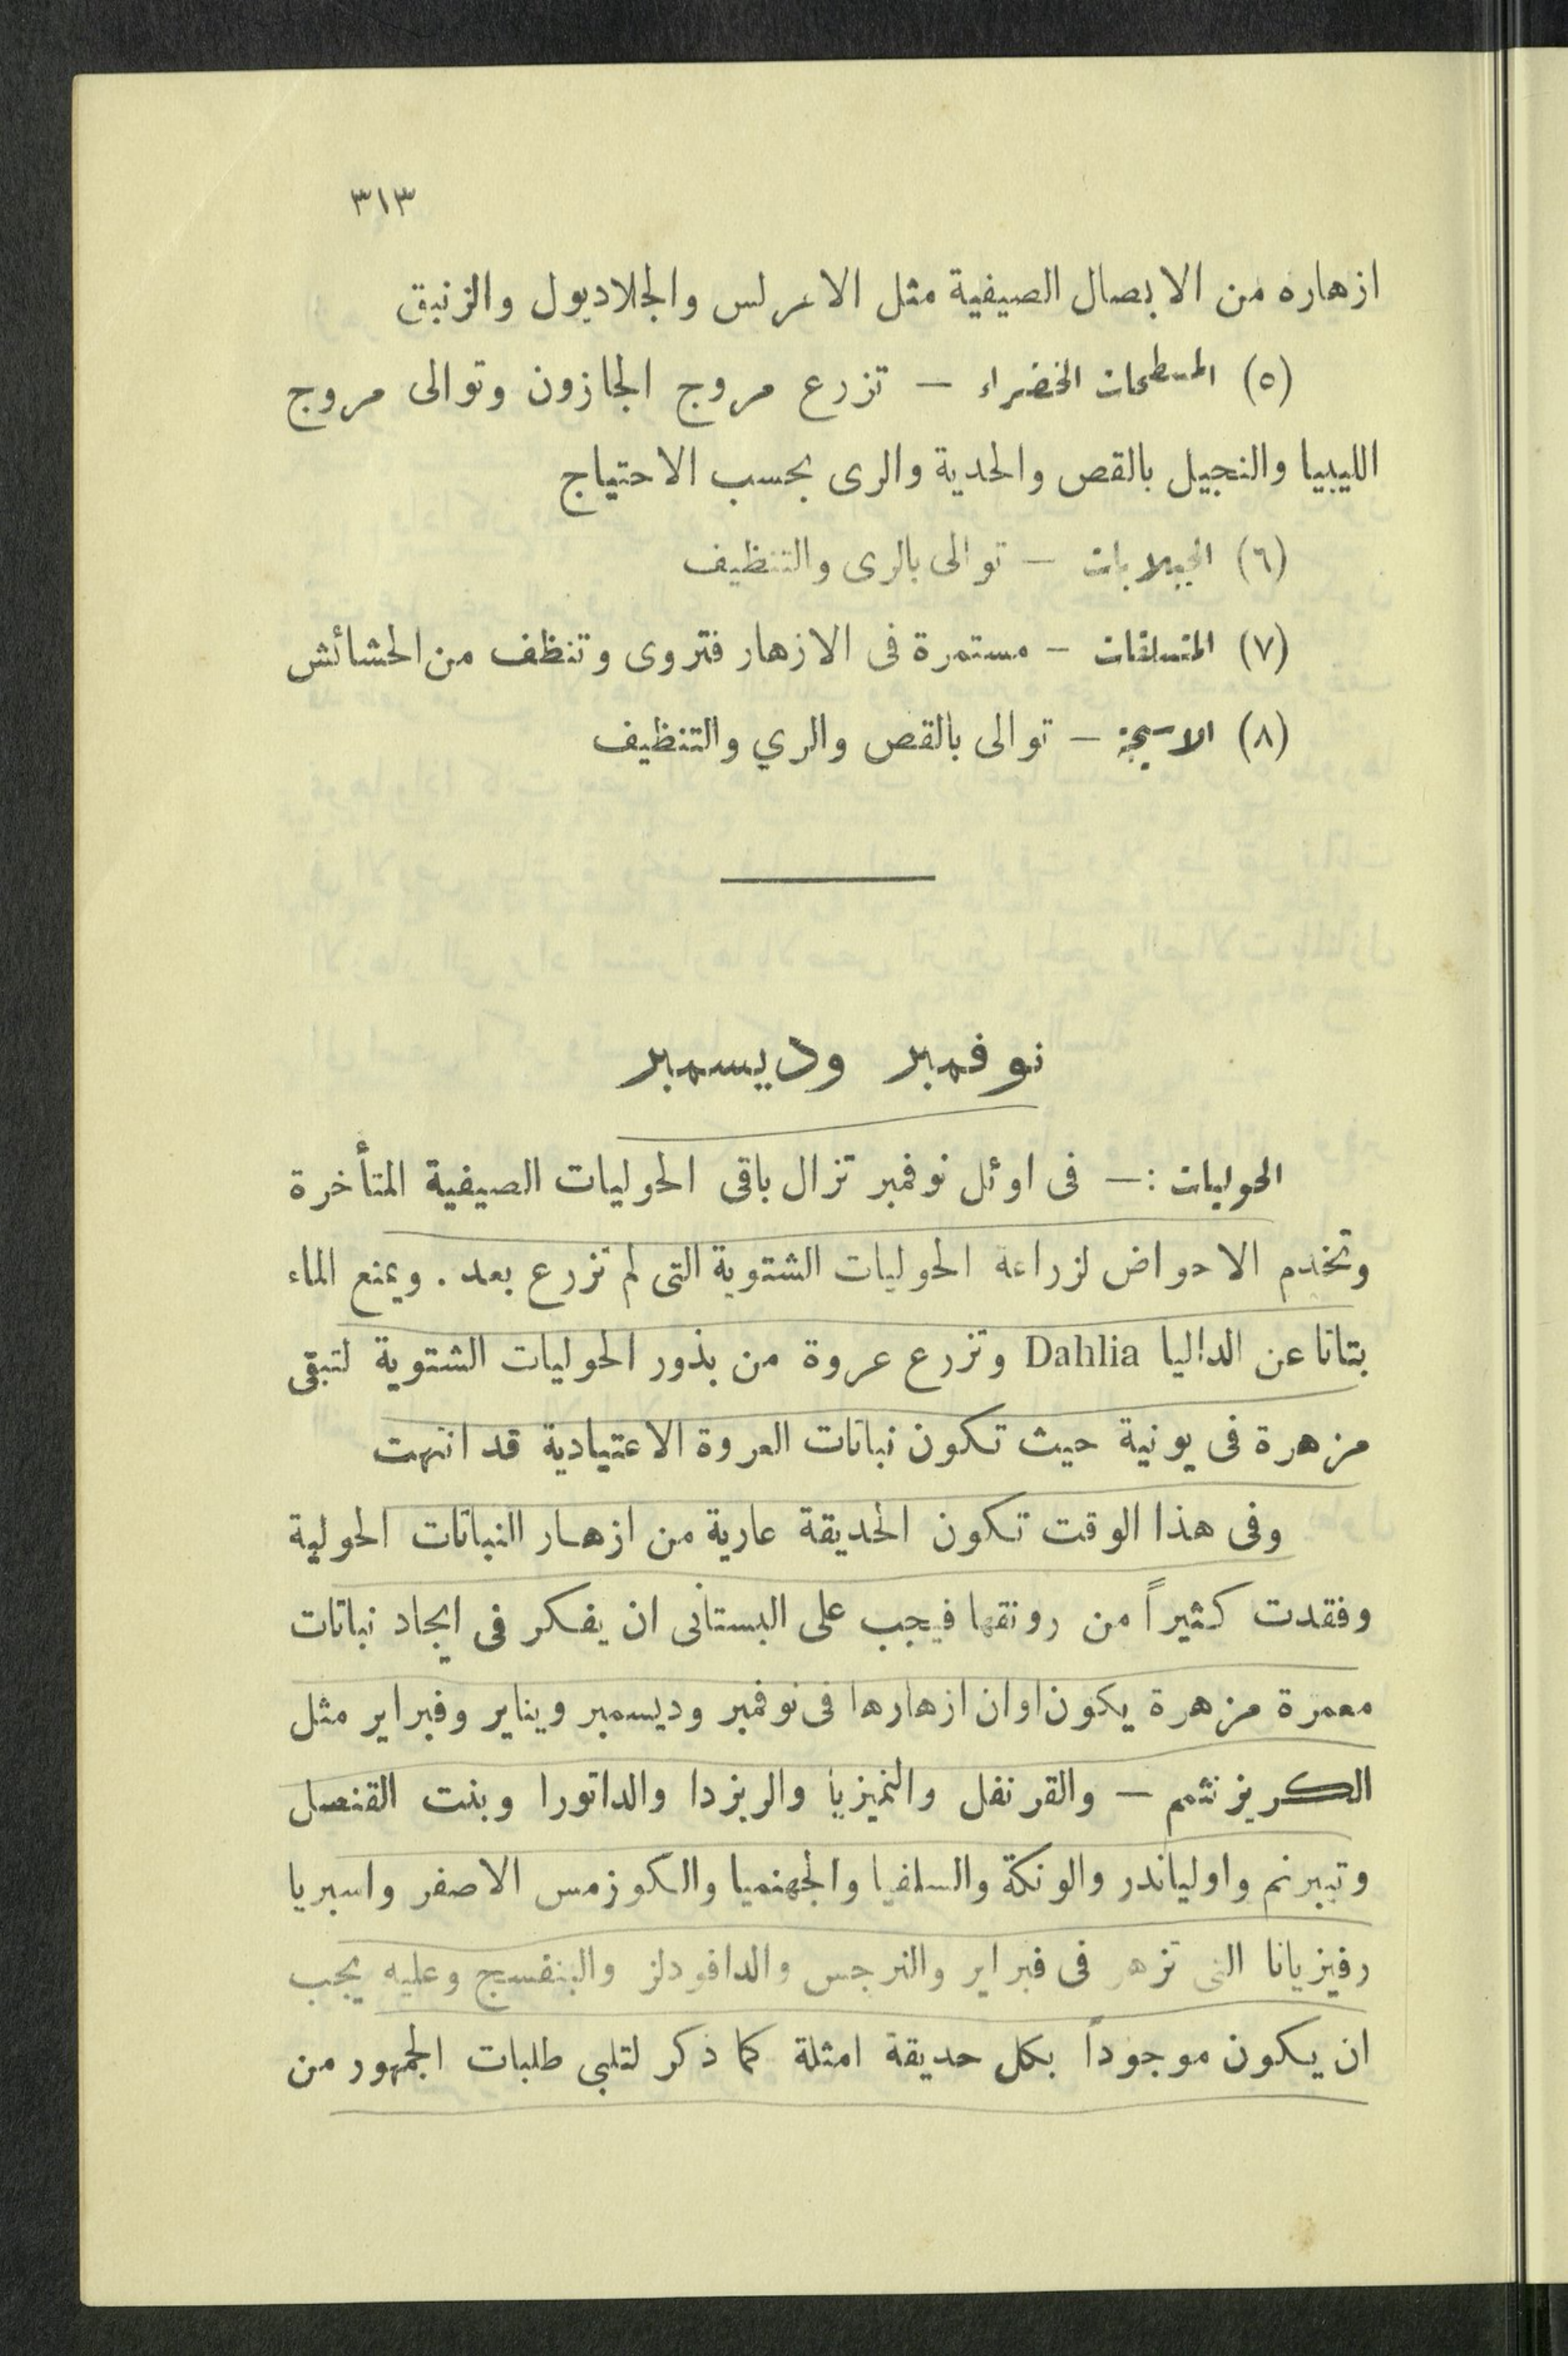 ٣١٣
ازهاره من الابصال الصيفية مثل الاعرلس والجلاديول والزنبق
(٥) المسطحات الخضراء — تزرع مروج الجازون وتوالى مروج
الليبيا والنجيل بالقص والحدية والرى بحسب الاحتياج
(٦) الجبلايات — توالى بالرى والتنظيف
(٧) المتسلقات — مستمرة فى الازهار فتروى وتنظف من الحشائش
(٨) الاسيجة — توالى بالقص والري والتنظيف
نوفمبر وديسمبر
الحوليات : — فى اوئل نوفمبر تزال باقى الحوليات الصيفية المتأخرة
وتخدم الاحواض لزراعة الحوليات الشتوية التى لم تزرع بعد . ويمنع الماء
بتاتا عن الداليا Dahlia وتزرع عروة من بذور الحوليات الشتوية لتبقى
مزهرة فى يونية حيث تكون نباتات العروة الاعتيادية قد انتهت
وفى هذا الوقت تكون الحديقة عارية من ازهار النباتات الحولية
وفقدت كثيراً من رونقها فيجب على البستانى ان يفكر فى ايجاد نباتات
معمرة مزهرة يكون اوان ازهارها فى نوفمبر وديسمبر ويناير وفبراير مثل
الكريزنثمم — والقرنفل والنميزيا والريزدا والداتورا وبنت القنصل
وتيبرنم واولياندر والونكة والسلفيا والجهنميا والكوزمس الاصفر واسبريا
رفيزيانا التى تزهر فى فبراير والنرجس والدافودلز والبنفسج وعليه يجب
ان يكون موجوداً بكل حديقة امثلة كما ذكر لتلبى طلبات الجمهور من